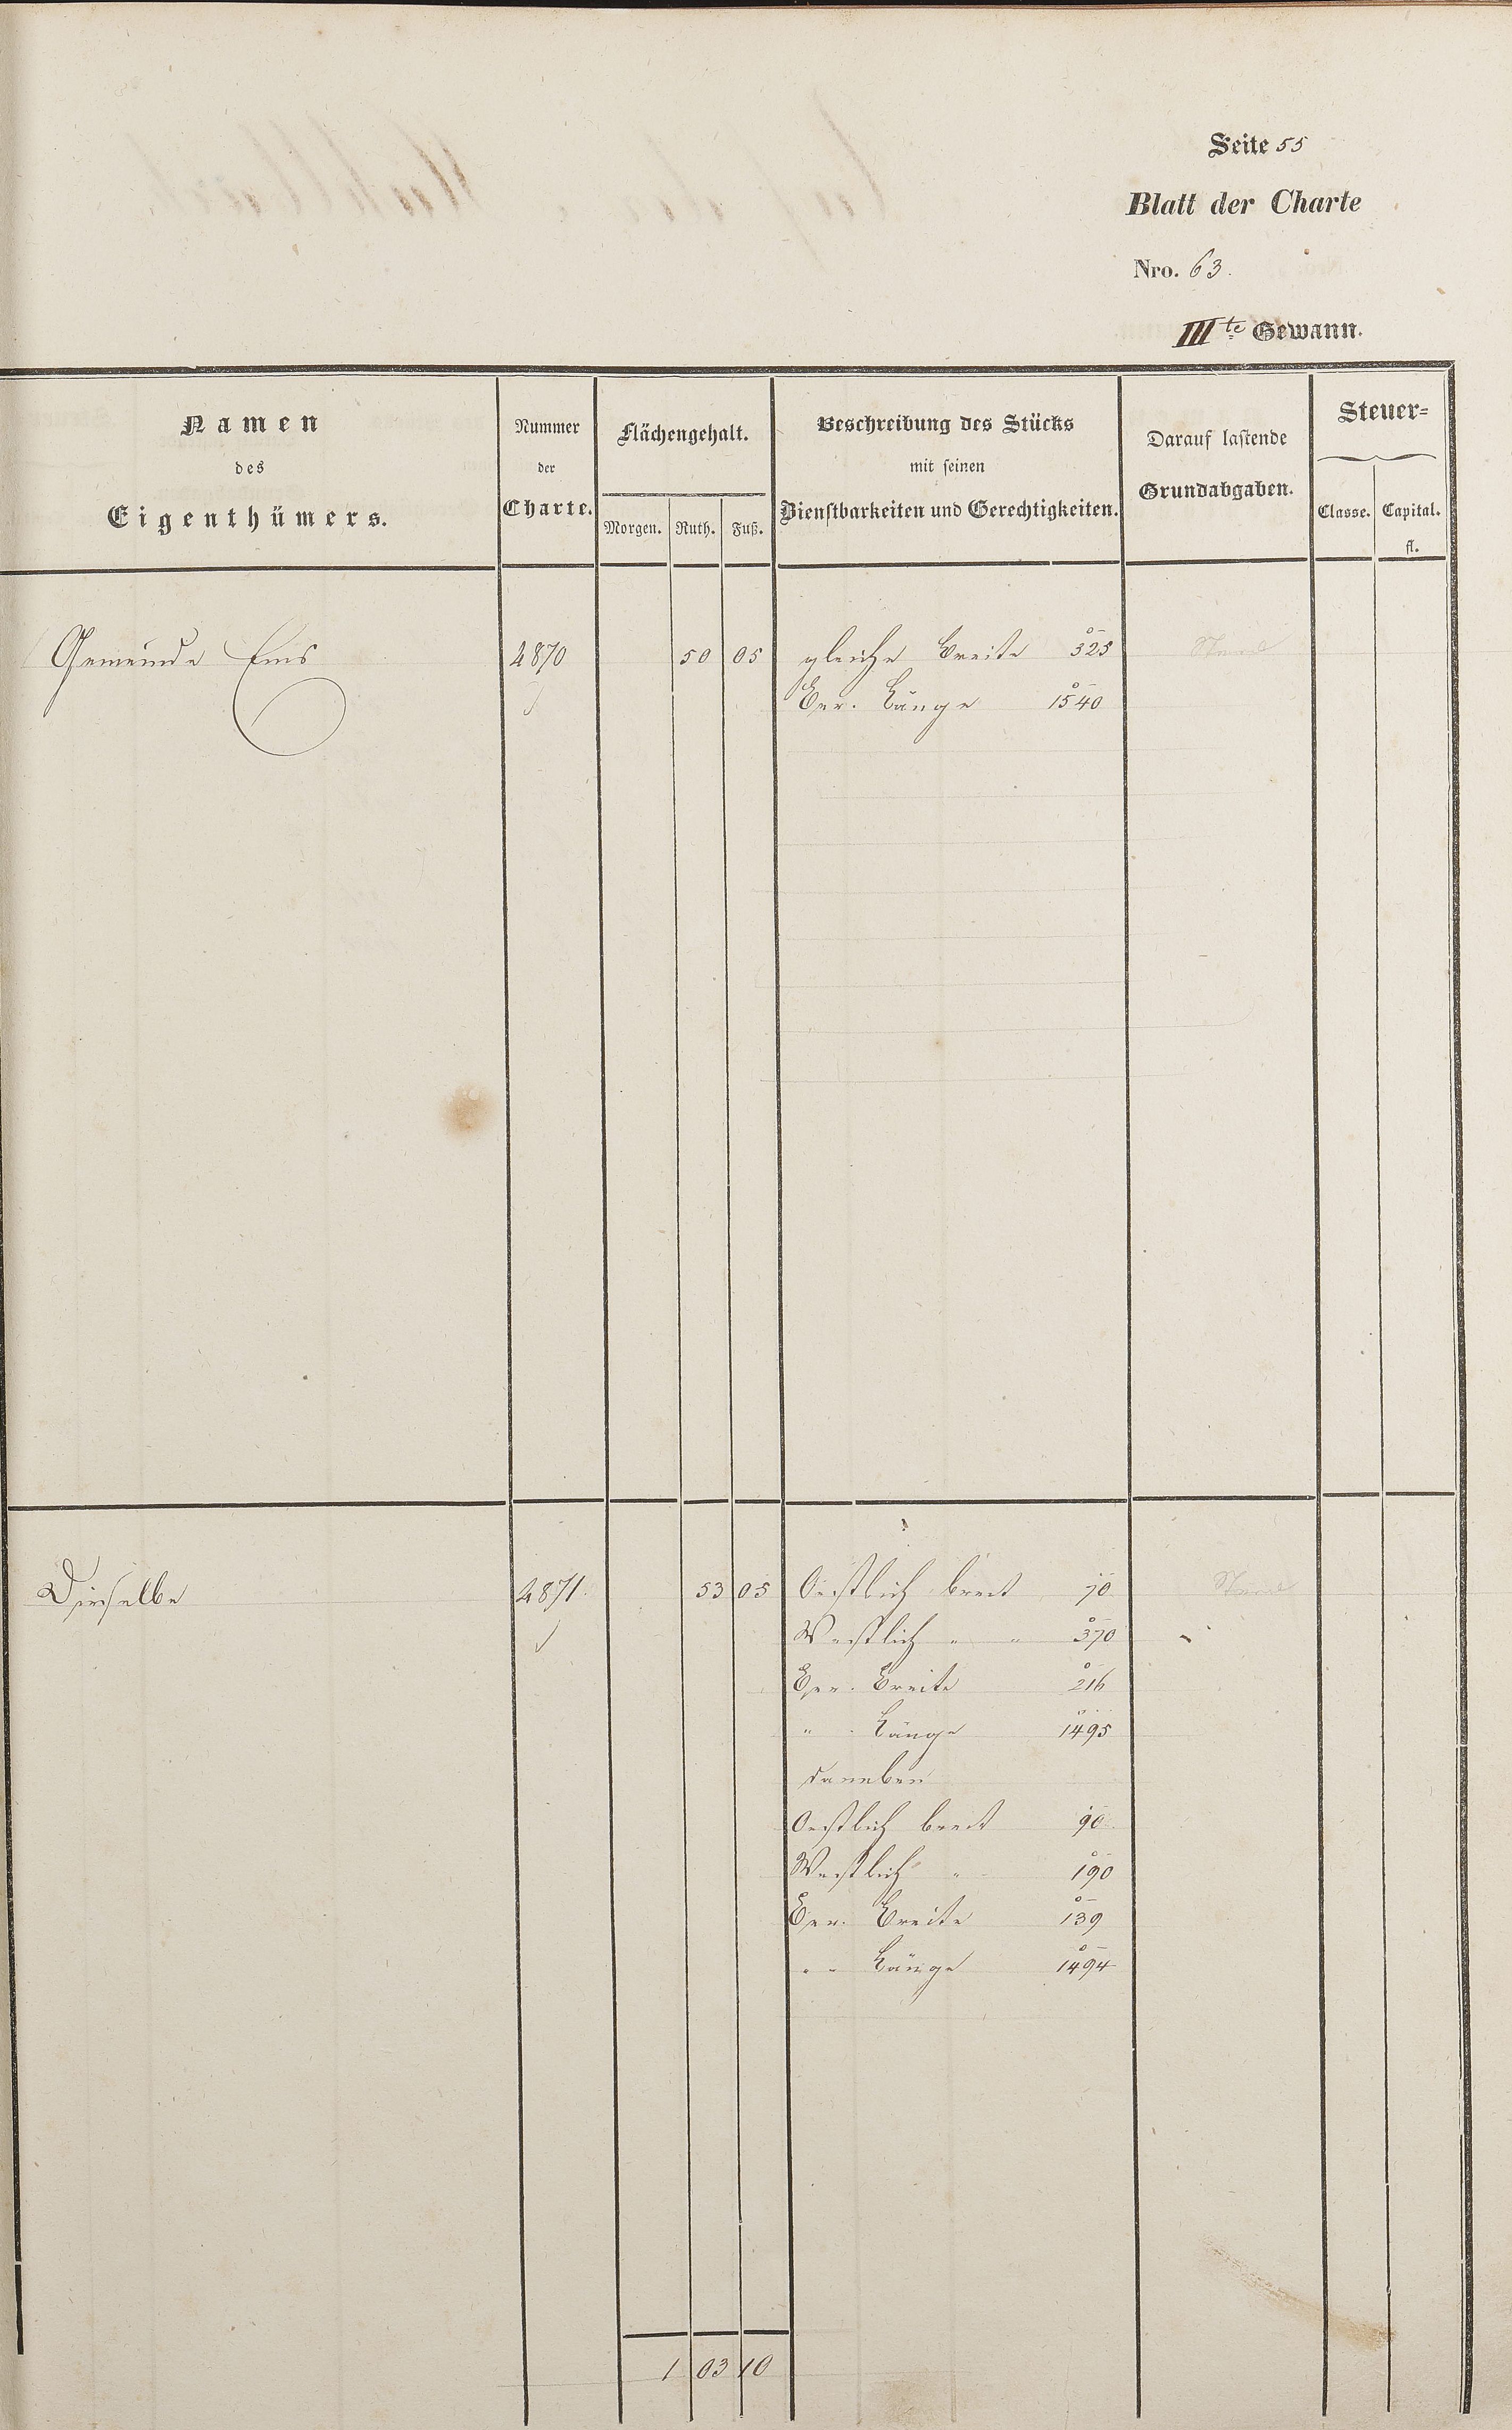 Seite 55
Blatt der Charte
Nro. 63.
IIIte Gewann.
Namen des Eigenthümers.
Nummer der Charte.
Flächengehalt.
Morgen. Ruth. Fuß.
Beschreibung des Stücks mit seinen Dienstbarkeiten und Gerechtigkeiten.
Darauf lastende Grundabgaben.
Steuer=
Classe. Capital. fl.
Gemeinde Ems 4870 50 05 gleiche Breite 325
Ger. Länge 1540
Dieselbe 4871. 53 05 Oestlich breit 70
Westlich " " 370
Ger. Breite 216
" . Länge 1495
daneben
Oestlich breit 90
Westlich " 190
Ger. Breite 139
" " Länge 1494
1 03 10